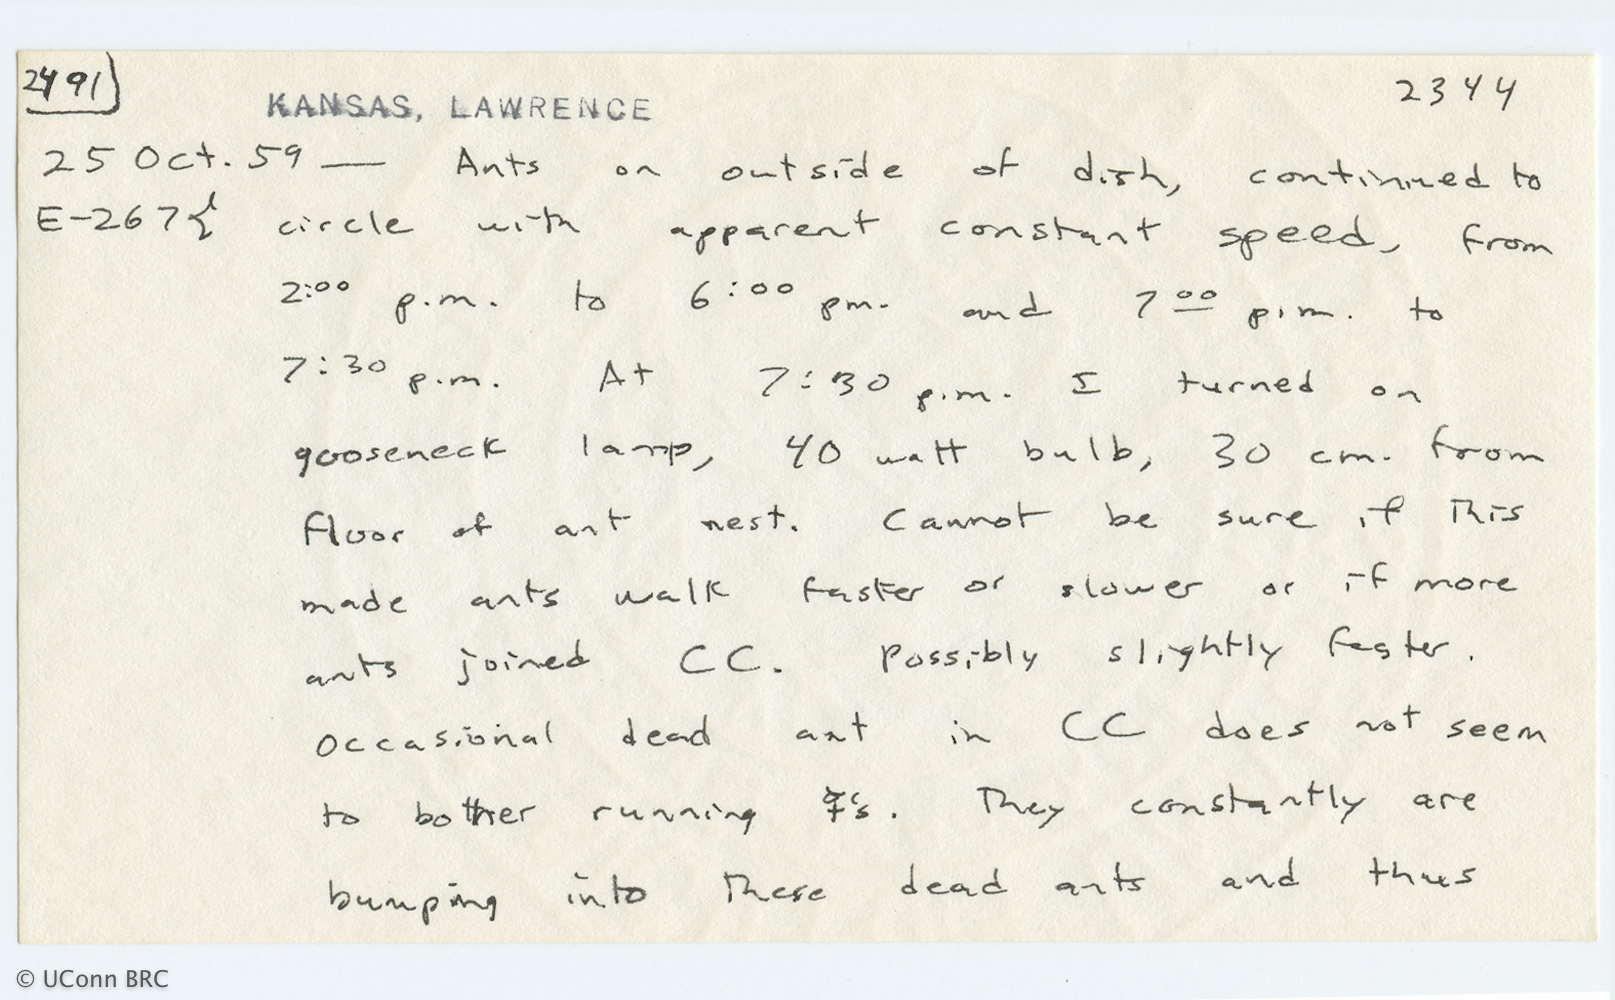 2491
2344
KANSAS, LAWRENCE
25 Oct. 59 — Ants on outside of dish, continued to
E-267 circle with apparent constant speed, from
2:00 p.m. to 6:00 pm. and 7 00 p.m. to
7:30 p.m. At 7:30 p.m. I turned on
gooseneck lamp, 40 watt bulb, 30 cm. from
floor of ant nest. Cannot be sure if this
made ants walk faster or slower or if more
ants joined CC. Possibly slightly faster.
Occasional dead ant in CC does not seem
to bother running ☿'s. They constantly are
bumping into these dead ants and thus
© UConn BRC